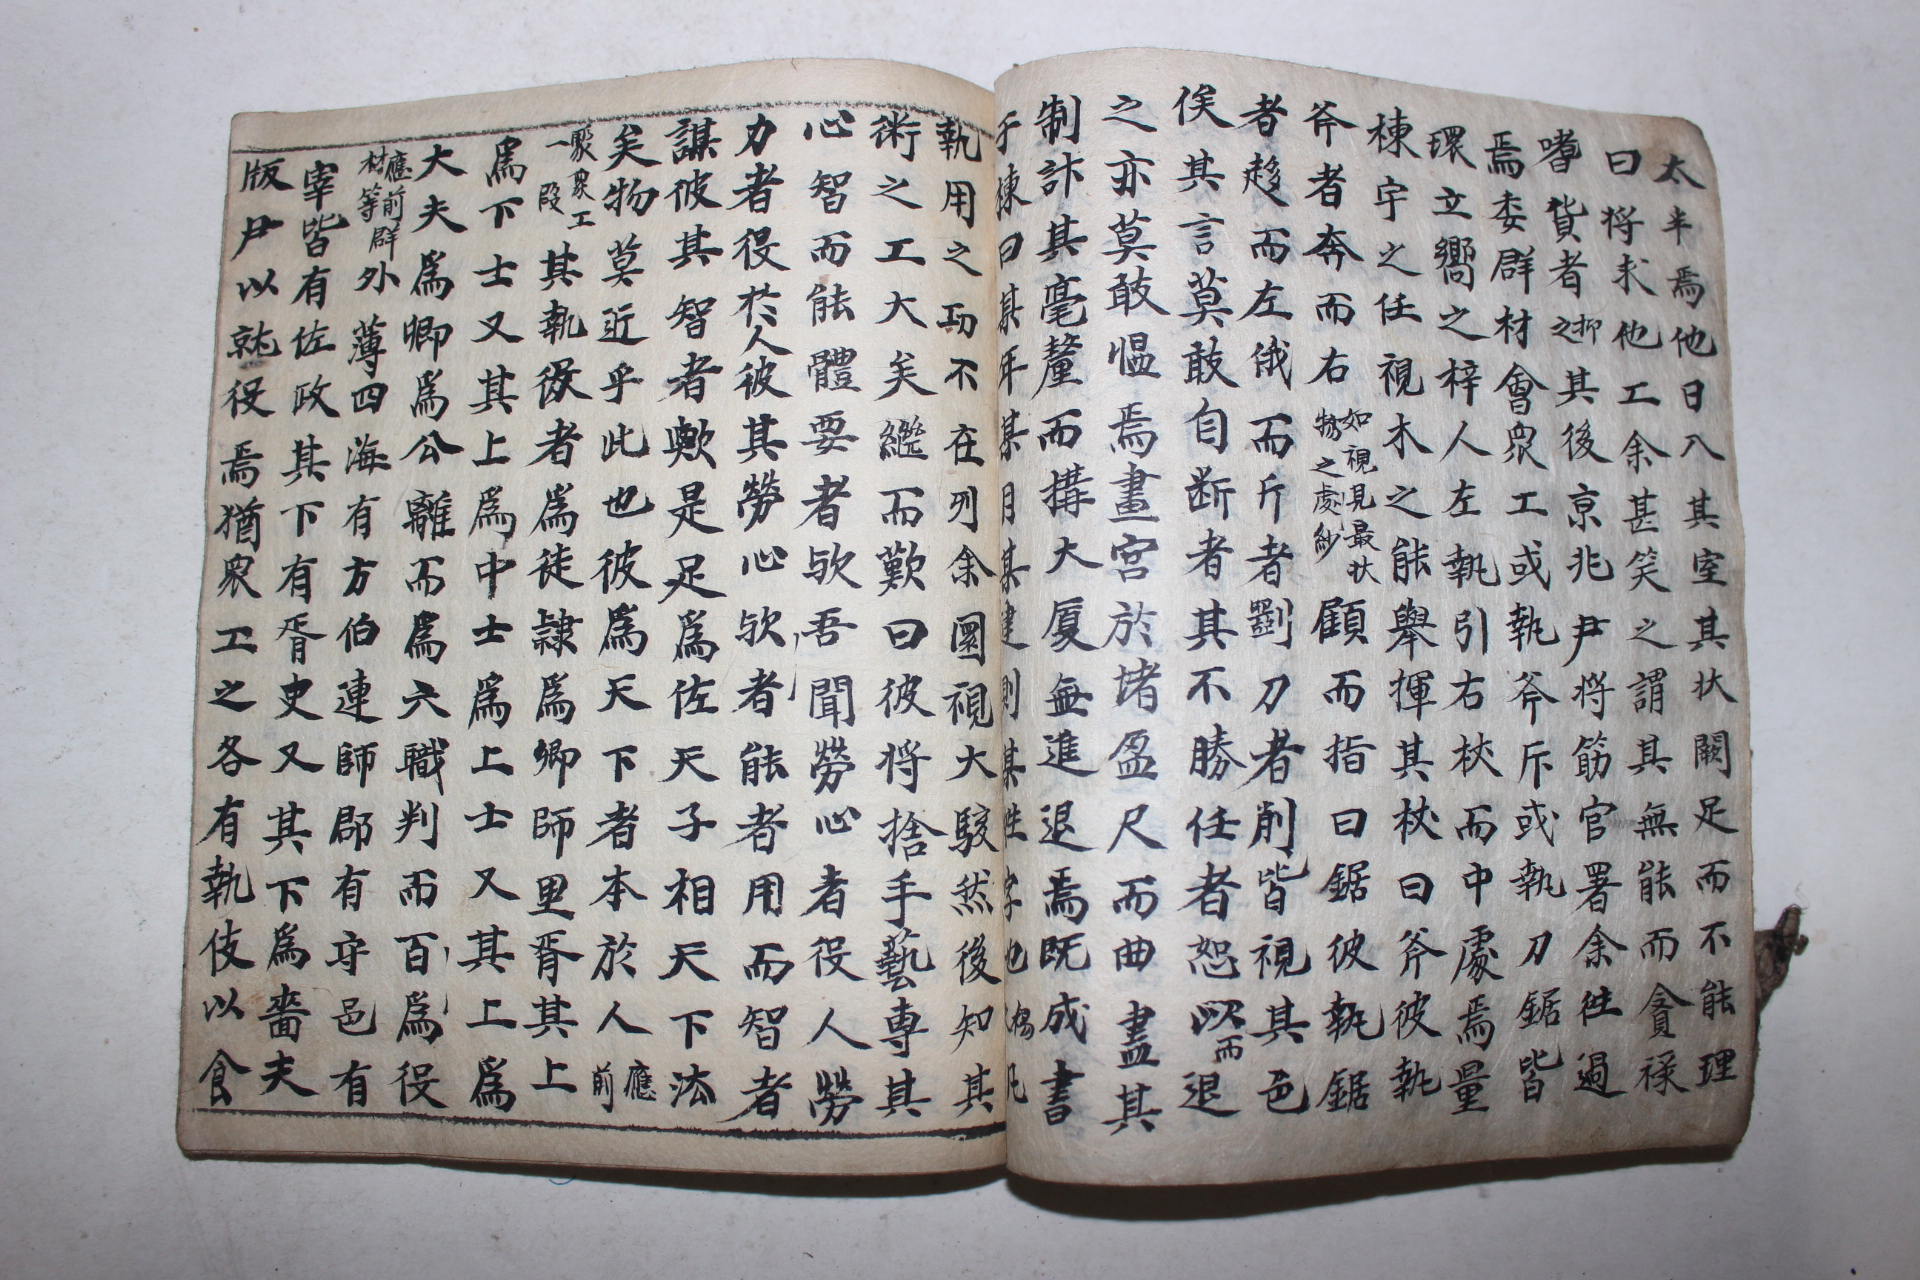 太半焉他日入其室其牀闕足而不能理
曰將求他工余甚笑之謂其無能而貪祿
嗜貨者抑之其後京兆尹將篩官署余往過
焉委群材會衆工或執斧斤或執刀鋸皆
環立嚮之梓人左執引右杖而中處焉量
棟宇之任視木之能舉揮其杖曰斧彼執
斧者奔而右如視見最壯物之處紗顧而指曰鋸彼執鋸
者趍而左俄而斤者劉刀者削皆視其色
俟其言莫敢自断者其不勝任者恕以而退
之亦莫敢慍焉畫宮於堵盈尺而曲盡其
制計其毫釐而搆大厦無進退焉既成書
于棟曰某年某月某建則某姓字也 凡
執用之功不在列余圜視大駭然後知其
術之工大矣繼而歎曰彼將捨手藝專其
心智而能體要者欤吾聞勞心者役人勞
力者役於人彼其勞心欤者能者用而智者
謀彼其智者歟是足爲佐天子相天下法
矣物莫近乎此也彼爲天下者本於人應前
聚衆工一段其執役者爲徒隸爲卿師里胥其上
爲下士又其上爲中士爲上士又其上爲
大夫爲卿爲公離而爲六職判而百爲役
應前群材等外薄四海有方伯連師郡有守邑有
宰皆有佐政其下有胥史又其下爲嗇夫
版尹以就役焉猶衆工之各有執伎以食